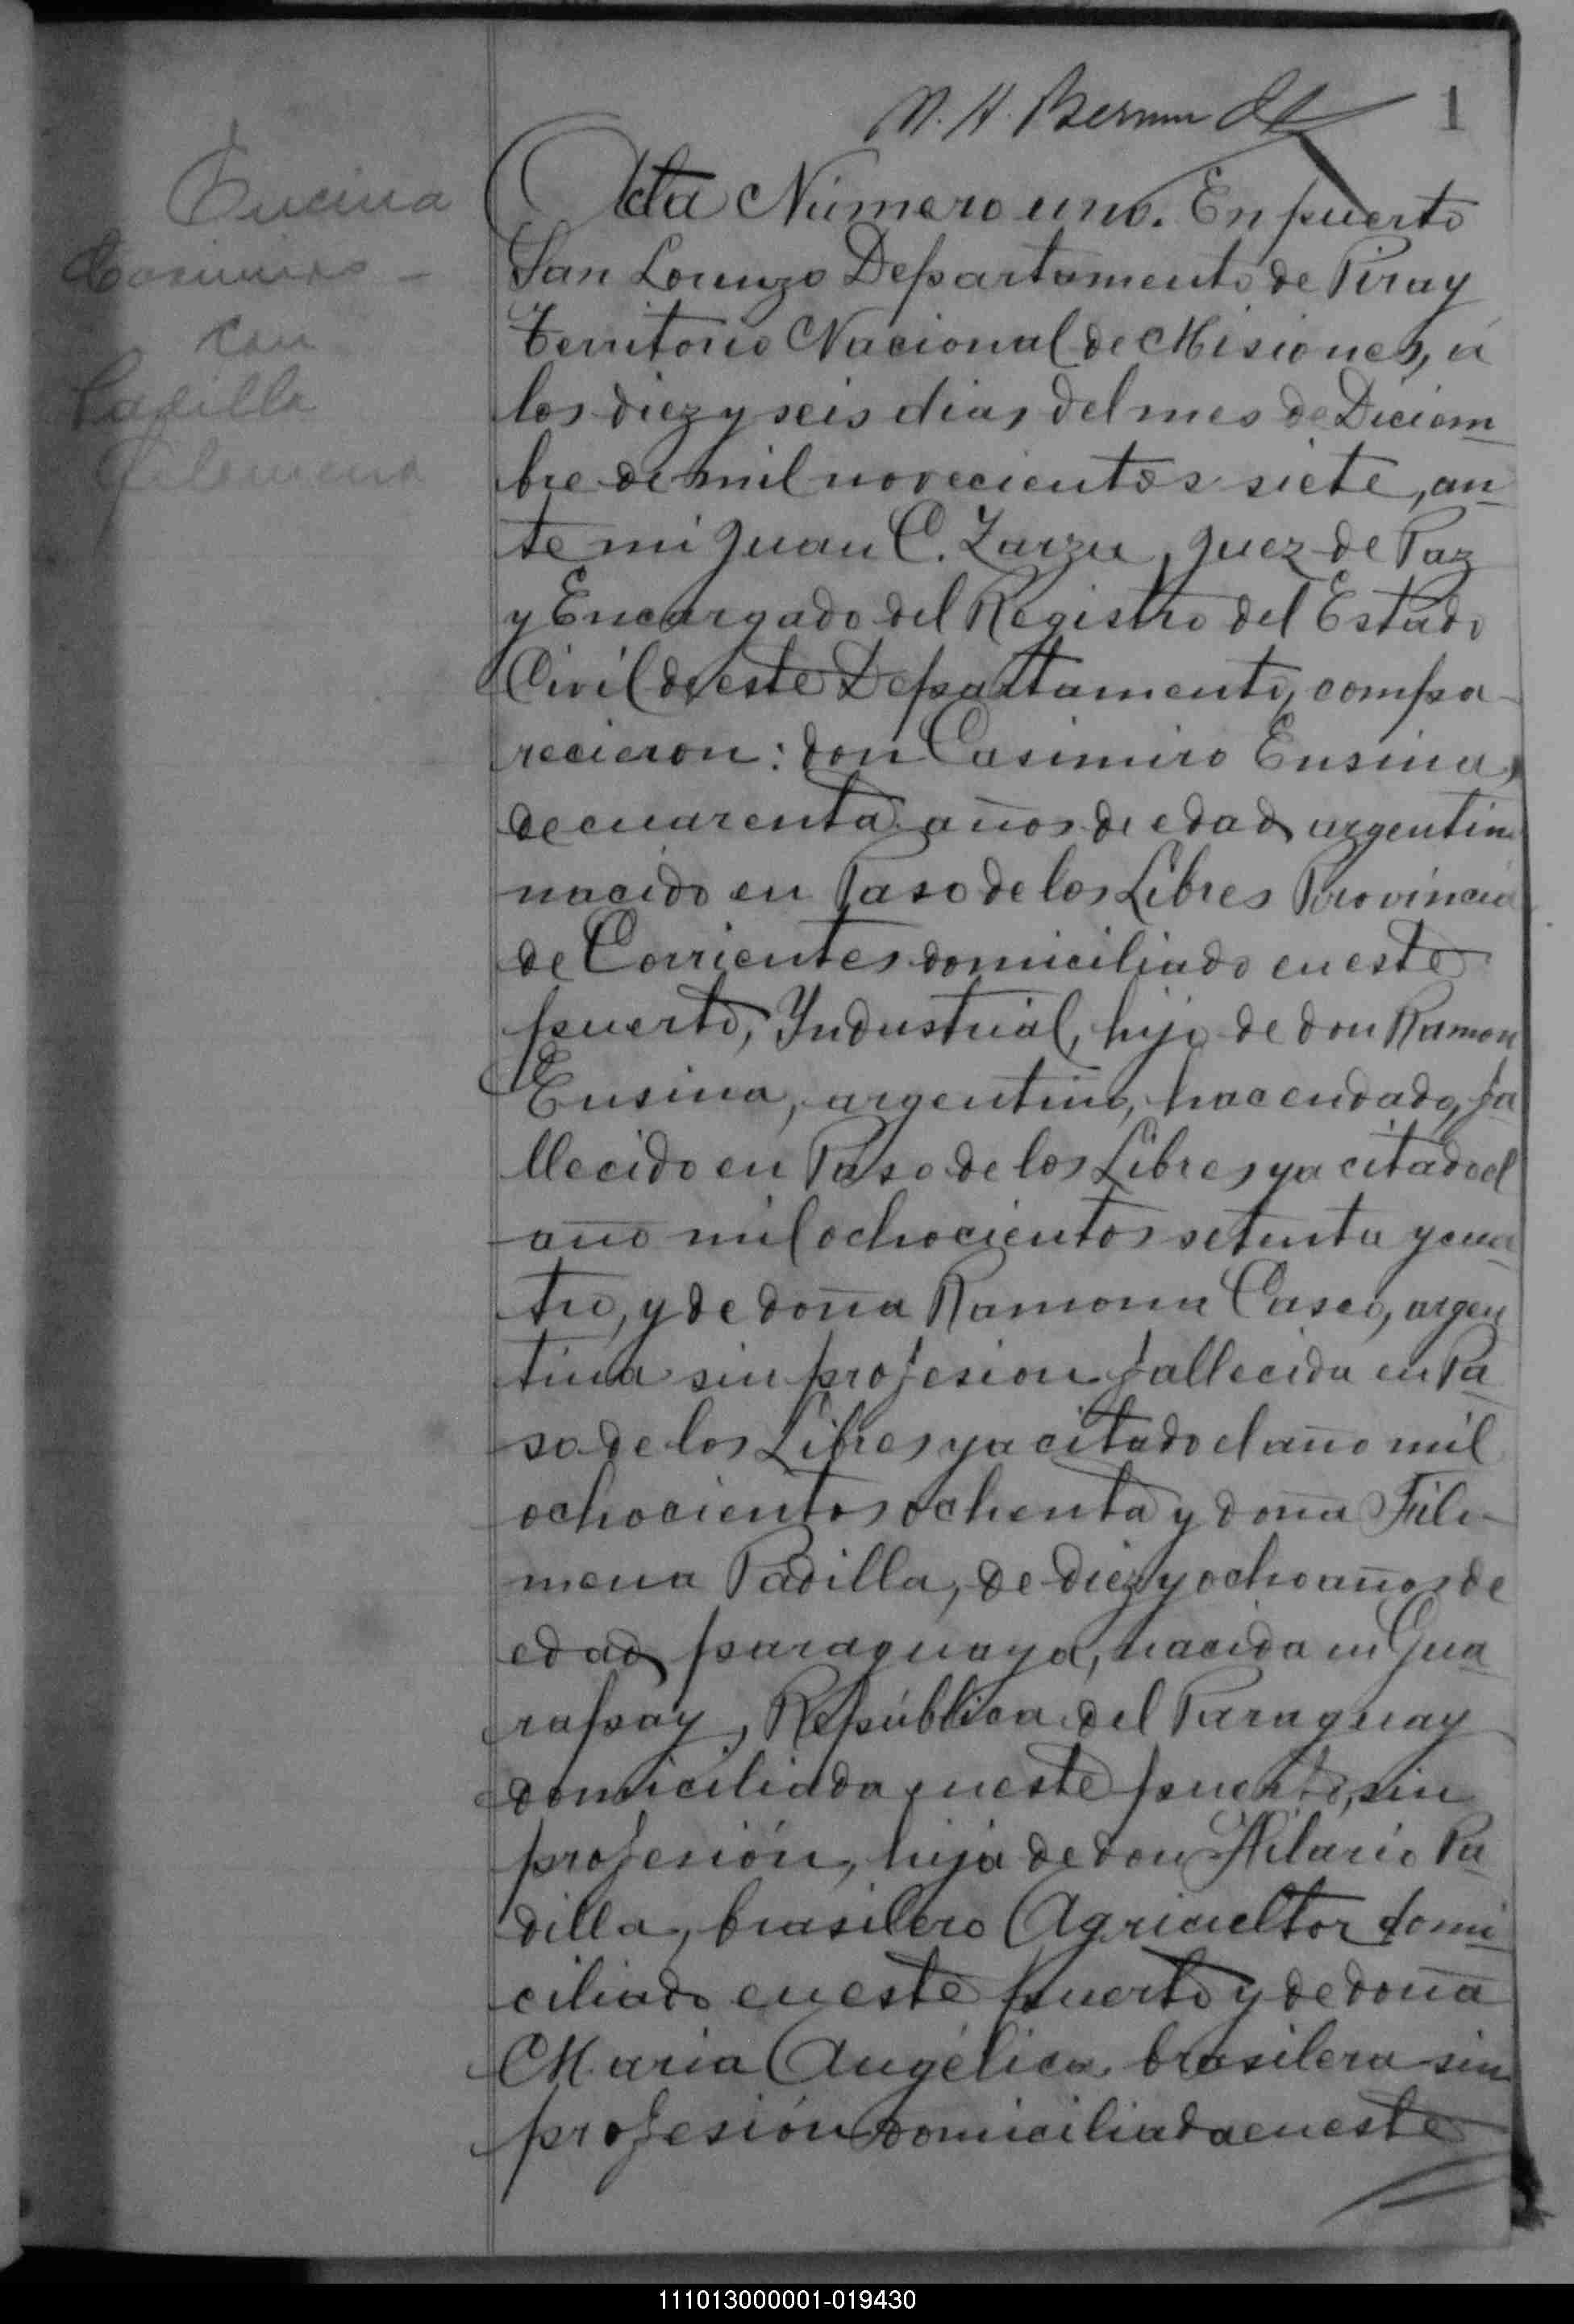 1
Encina
Casimiro -
con
Padilla
Filemena
Acta Número uno. En puerto
San Lorenzo Departamento de Piray
Territorio Nacional de Misiones, á
los diez y seis dias del mes de Diciem
bre de mil novecientos siete, an
te mi Juan C. Zarza, Juez de Paz
y Encargado del Registro del Estado
Civil de este Departamento, compa
recieron: don Casimiro Ensina,
de cuarenta años de edad argentino
nacido en Paso de los Libres Provincia
de Corrientes domiciliado en este
puerto, Industrial, hijo de don Ramon
Ensina, argentino, hacendado, fa
llecido en Paso de los Libres ya citado el
año mil ochocientos setenta y cua
tro, y de doña Ramona Casco, argen
tina sin profesion fallecida en Pa
so de los Libres ya citado el año mil
ochocientos ochenta y doña File-
mena Padilla, de diez y ocho años de
edad paraguaya, nacida en Gua
rapay, República del Paraguay
domiciliada en este puerto, sin
profesión, hija de don Hilario Pa
dilla, brasilero Agricultor domi
ciliado en este puerto y de doña
Maria Angélica brasilera sin
profesión domiciliada en este
111013000001-019430